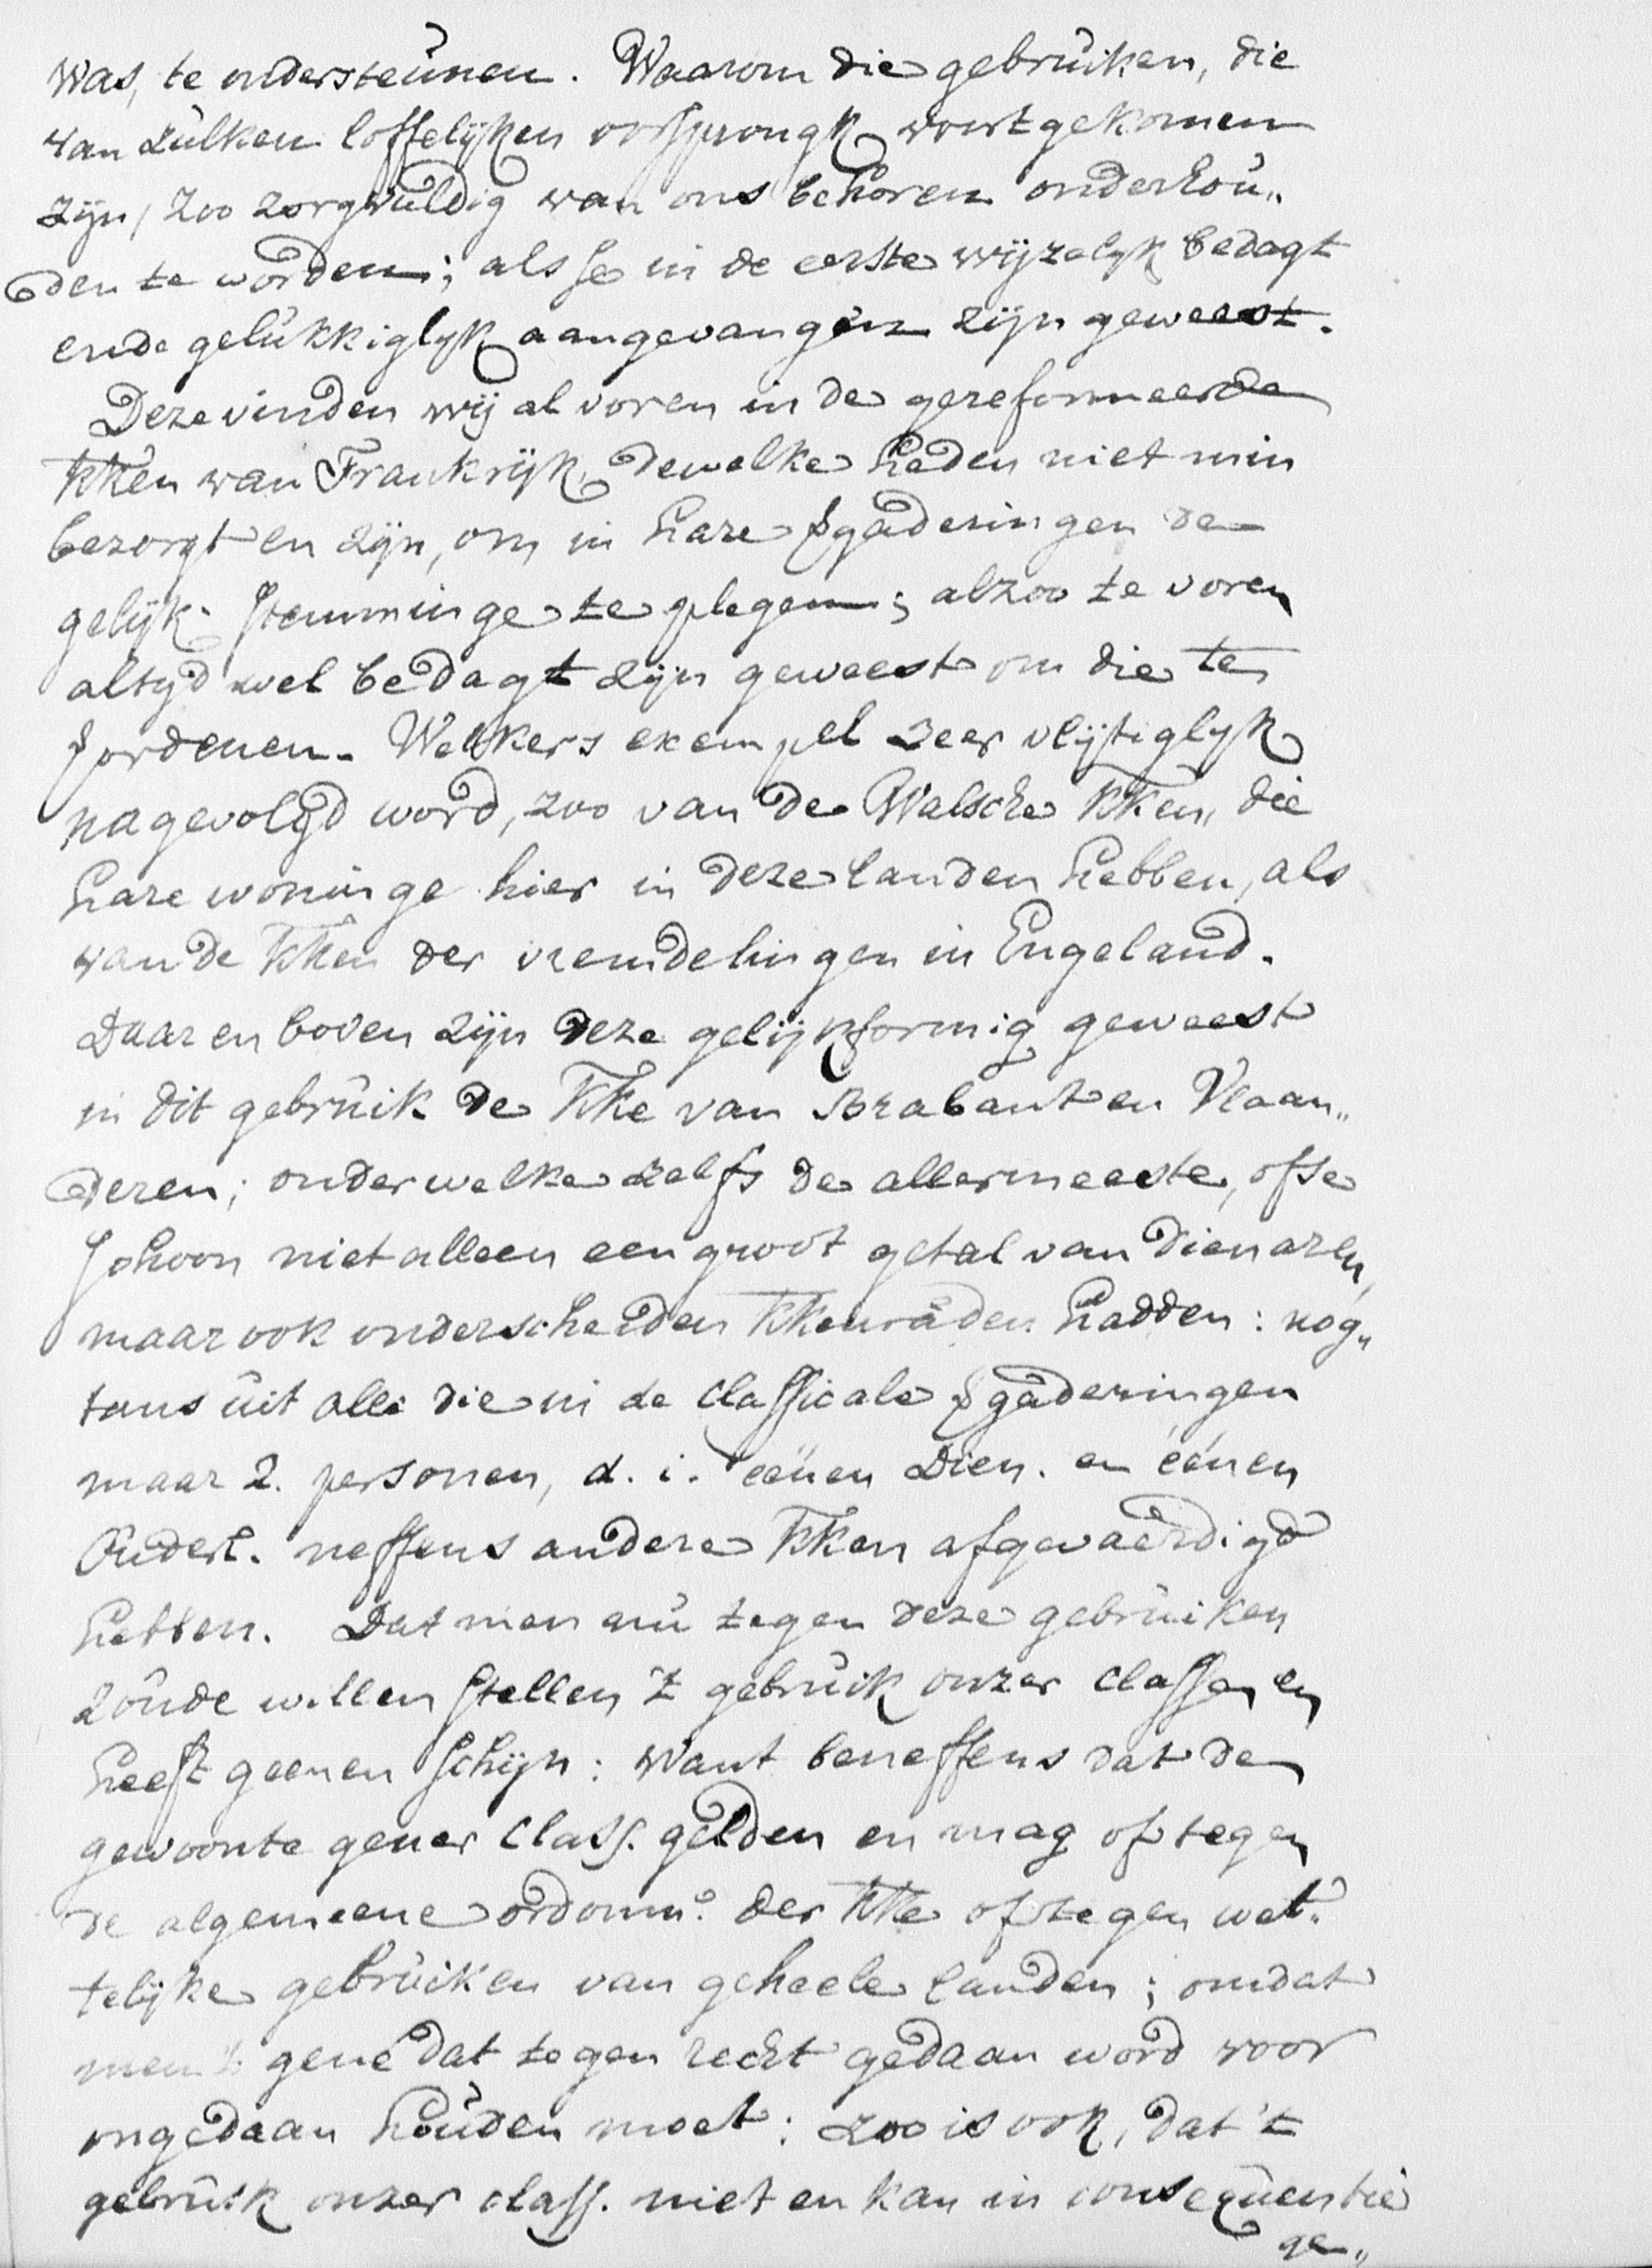 was, te ondersteunen. Waarom die gebruiken, die
van zulken loffelijken oorsprongk voortgekomen
zijn, zoo zorgvuldig van ons behoren onderhou„
den te worden; als se in de eerste wijzelijk bedagt
ende gelukkiglyk aangevangen zijn geweest.
Deze vinden wij al voren in de gereformeerde
kken van Frankrijk, dewelke heden niet min
bezorgt en zijn, om in hare vgaderingen de
gelijk stemminge te plegen; alzoo te voren
altyd wel bedagt zijn geweest om die te
vordenen. Welkers exempel zeer vlijtiglyk
nagevolgd word, zoo van de Walsche kken, die
hare woninge hier in deze landen hebben, als
van de kken der vremdelingen in Engeland.
Daar en boven zijn deze gelijkformig geweest
in dit gebruik de kke van Brabant en Vlaan„
deren; onder welke zelfs de allermeeste, ofse
schoon niet alleen een groot getal van dienaren,
maar ook onderscheiden kkenraden hadden: nog„
tans uit alle die in de classicale vgaderingen
maar 2. personen, d. i. eénen Dien. en éénen
Ouderl. neffens andere kken afgevaerdigd
hebben. Dat men nu tegen deze gebruiken
zoude willen stellen 't gebruik onzer classen en
heeft geenen schijn: want beneffens dat de
gewoonte gener class. gelden en mag of tegen
de algemeene ordonn.ᵉ der kke of tegen wet„
telijke gebruiken van geheele landen; omdat
men 't gene dat tegen recht gedaan word voor
ongedaan houden moet: zoo is ook, dat 't
gebruik onzer class. niet en kan in consequentie
ge„